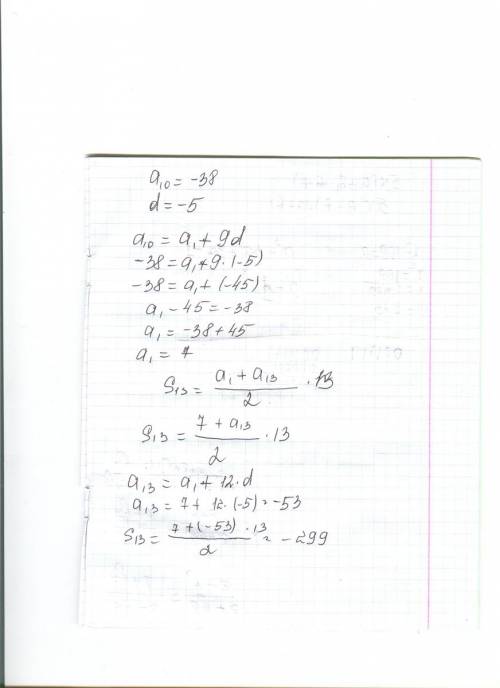 a₁₀ = -38
d = -5
a₁₀ = a₁ + 9d
-38 = a₁ + 9·(-5)
-38 = a₁ + (-45)
a₁ - 45 = -38
a₁ = -38 + 45
a₁ = 7
S₁₃ = (a₁ + a₁₃)/2 · 13
S₁₃ = (7 + a₁₃)/2 · 13
a₁₃ = a₁ + 12·d
a₁₃ = 7 + 12·(-5) = -53
S₁₃ = (7 + (-53) · 13)/2 = -299